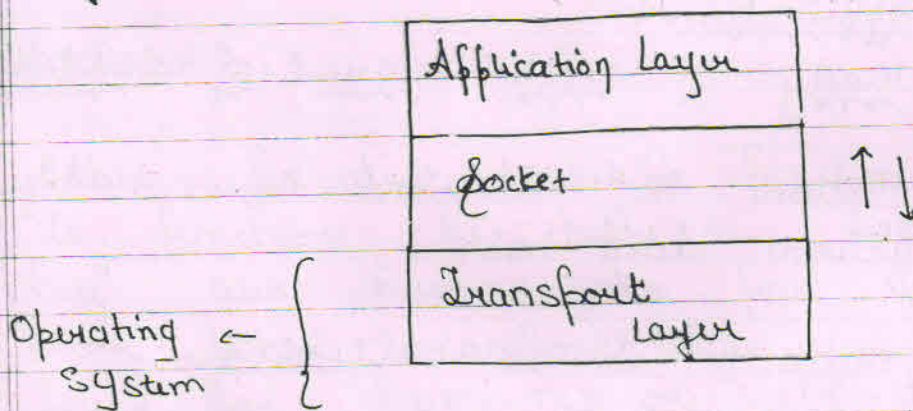 Application Layer
Socket
Transport
Layer
Operating
System